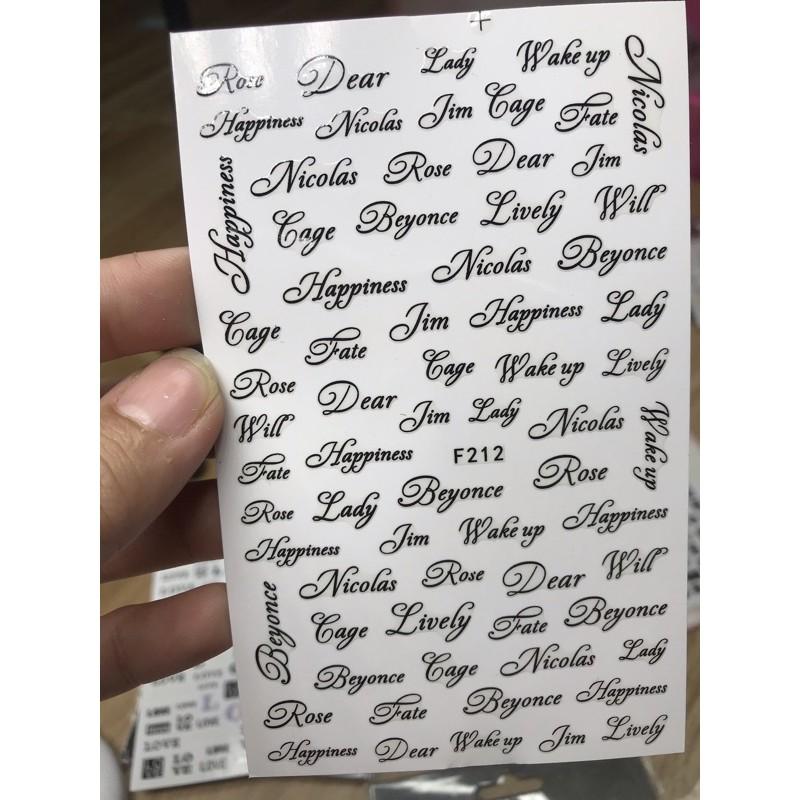 Rose Dear Lady Wake up Nicolas
Happiness Nicolas Jim Cage Fate
Happiness Nicolas Rose Dear Jim
Cage Beyonce Lively Will
Happiness Nicolas Beyonce
Cage Fate Jim Happiness Lady
Rose Dear Cage Wake up Lively
Will Jim Lady Nicolas Wake up
Fate Happiness F212 Rose
Rose Lady Beyonce Happiness
Happiness Jim Wake up
Beyonce Nicolas Rose Dear Will
Cage Lively Fate Beyonce
Beyonce Cage Nicolas Lady
Rose Fate Beyonce Happiness
Happiness Dear Wake up Jim Lively